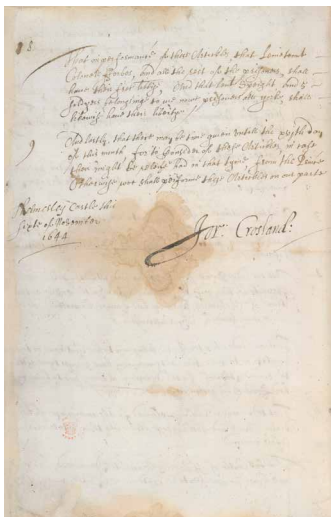 8
That in performance of these Articles that Leivetenant
Colonell Forbes, and all the rest of the prisoners, shall
have their free liberty, And that
soldyers belonging to me now prisoners att yorke, shall
likewise have their liberty
9
And lastly, that there may be tyme given untill the
of this month for to consider of these Articles, in case
there might be releife had in that tyme from the Prince
Otherwise wee shall performe these Articles on our parte
Helmesley Castle this
sixte of November
1644
Jor: Crosland: